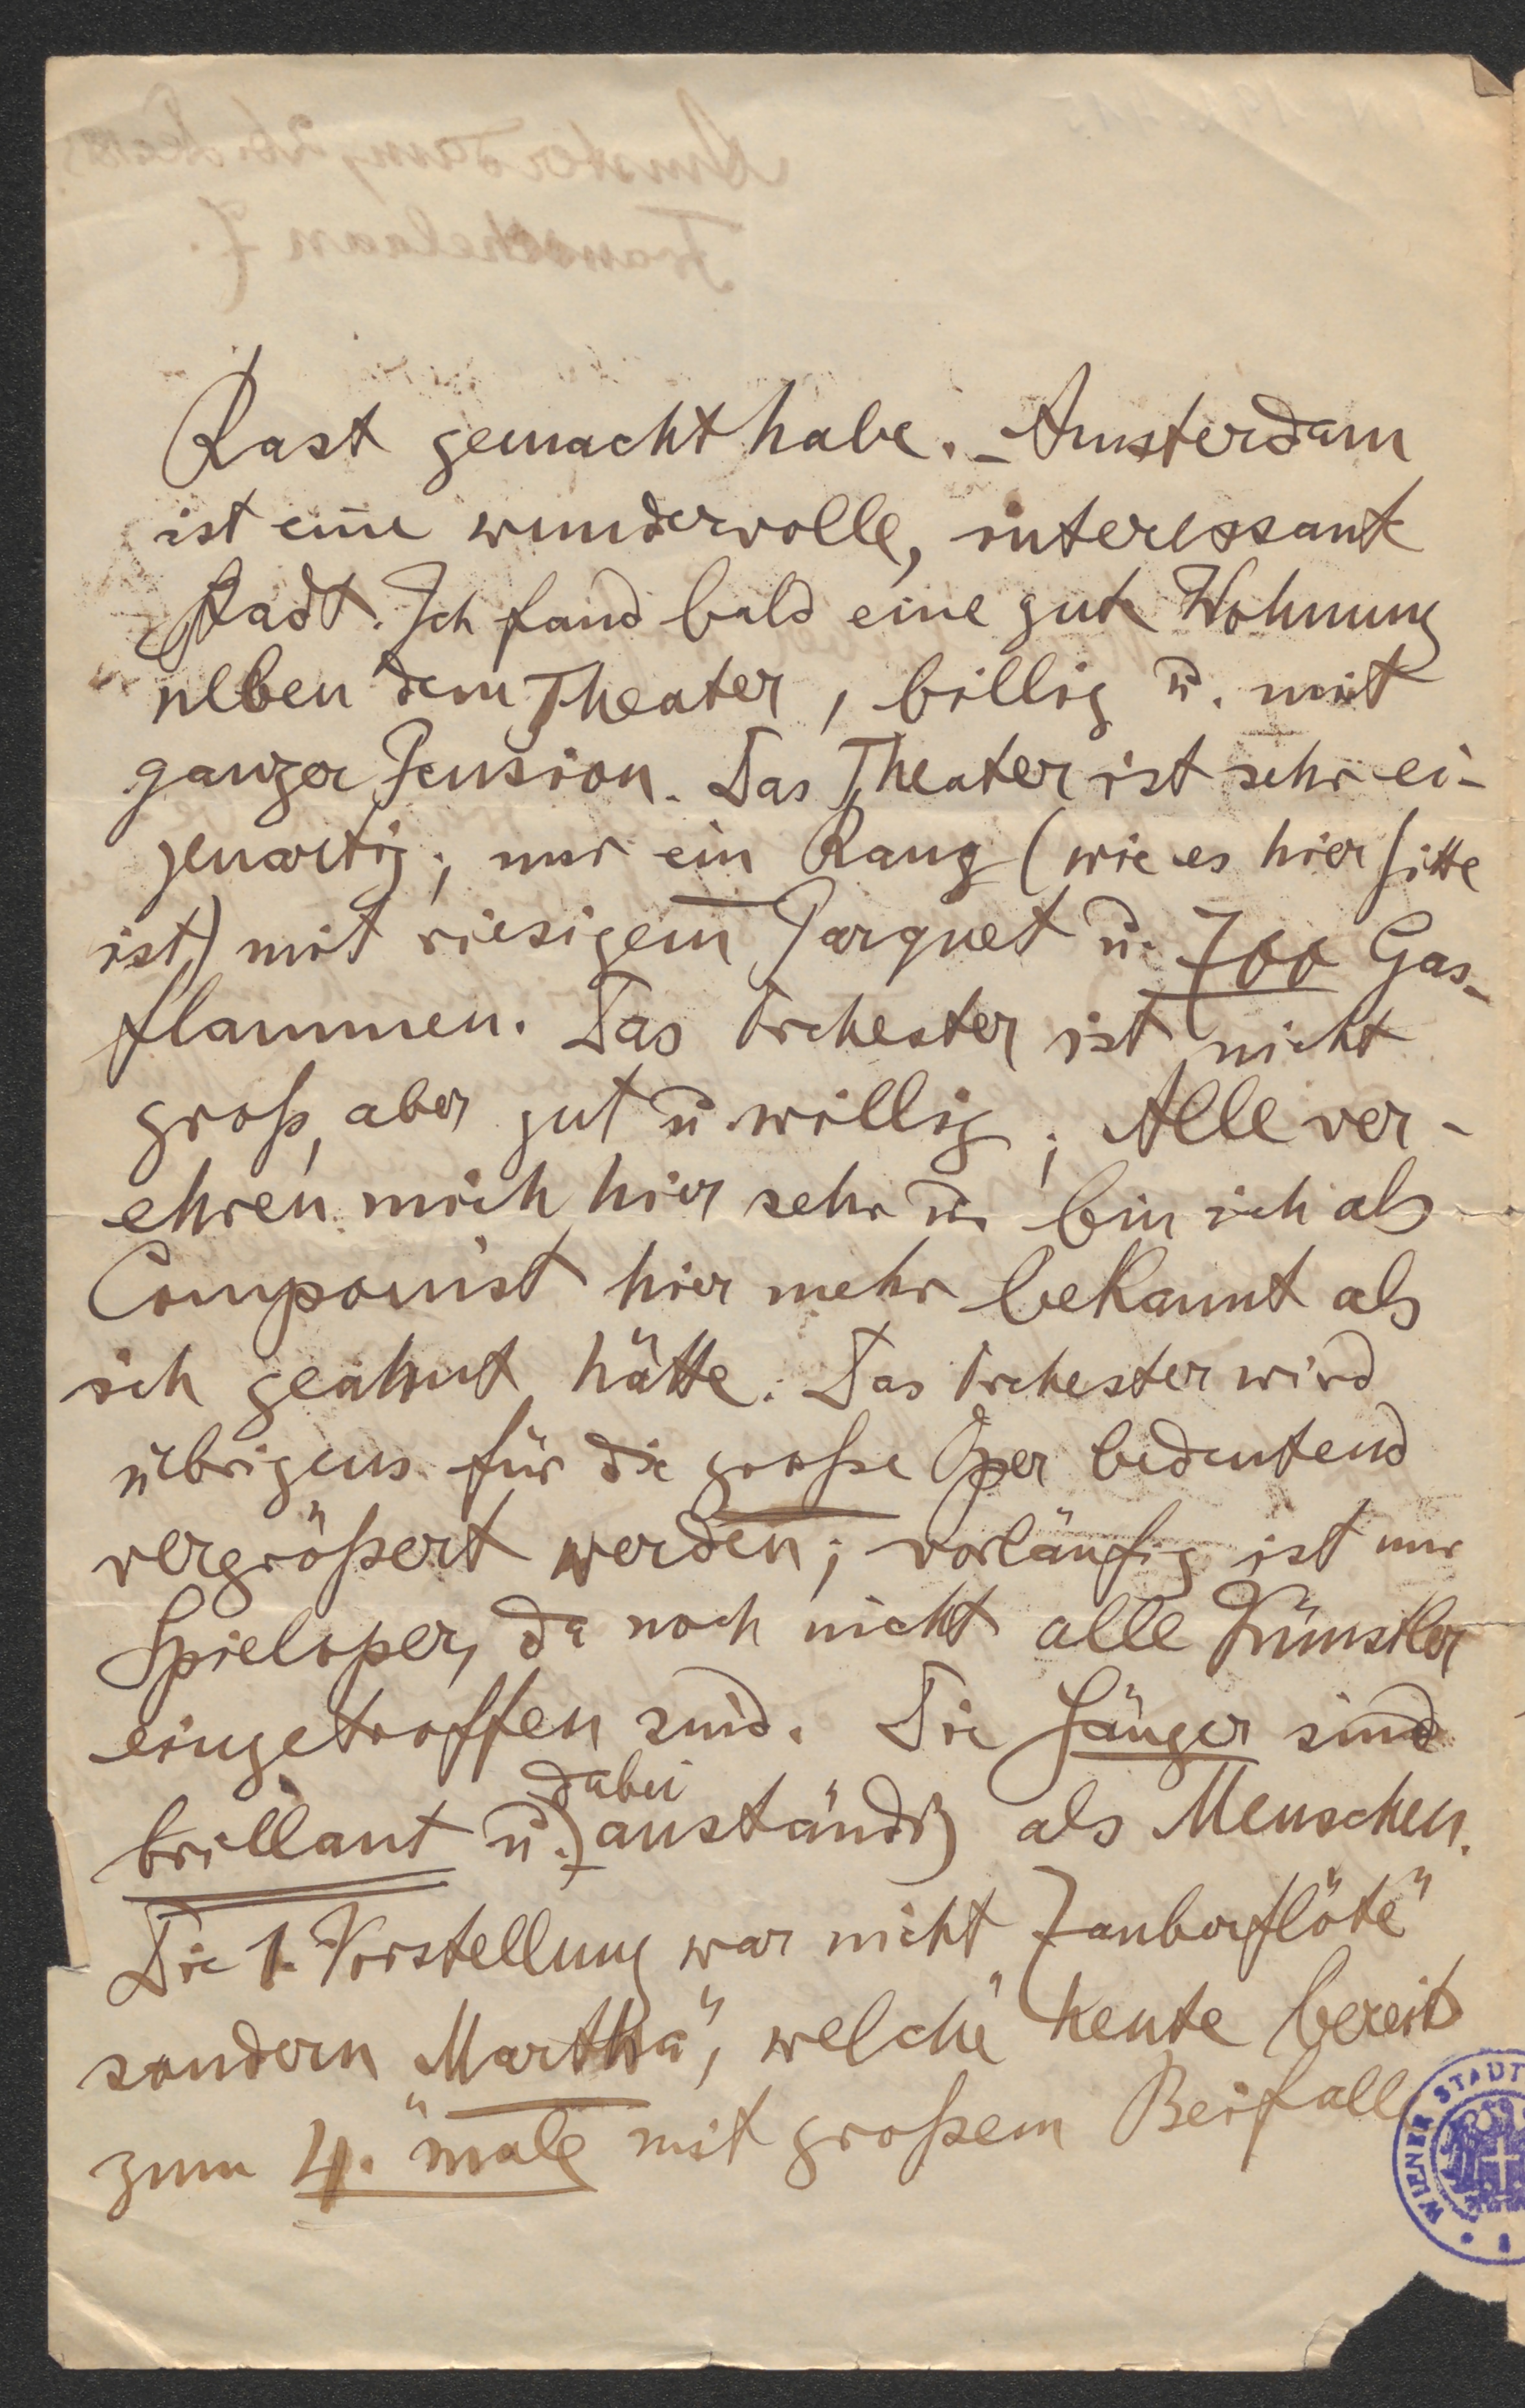 Rast gemacht habe. – Amsterdam
ist eine wundervolle, interessante
Stadt. Ich fand bald eine gute Wohnung
neben dem Theater, billig u. mit
ganzer Pension. Das Theater ist sehr ei-
genartig; nur ein Rang (wie es hier Sitte
ist) mit riesigem Parquet u. 700 Gas-
flammen. Das Orchester ist nicht
groß, aber gut u. willig; Alle ver-
ehren mich hier sehr u. bin ich als
Componist hier mehr bekannt als
ich geahnt hätte. Das Orchester wird
übrigens für die große Oper bedeutend
vergrößert werden; vorläufig ist nur
Spieloper, da noch nicht alle Künstler
eingetroffen sind. Die Sänger sind
dabei
brillant u. anständig als Menschen.
Die 1. Vorstellung war nicht Zauberflöte"
sondern „Martha", welche heute bereits
zum 4. male mit großem Beifall
WIENER STADT